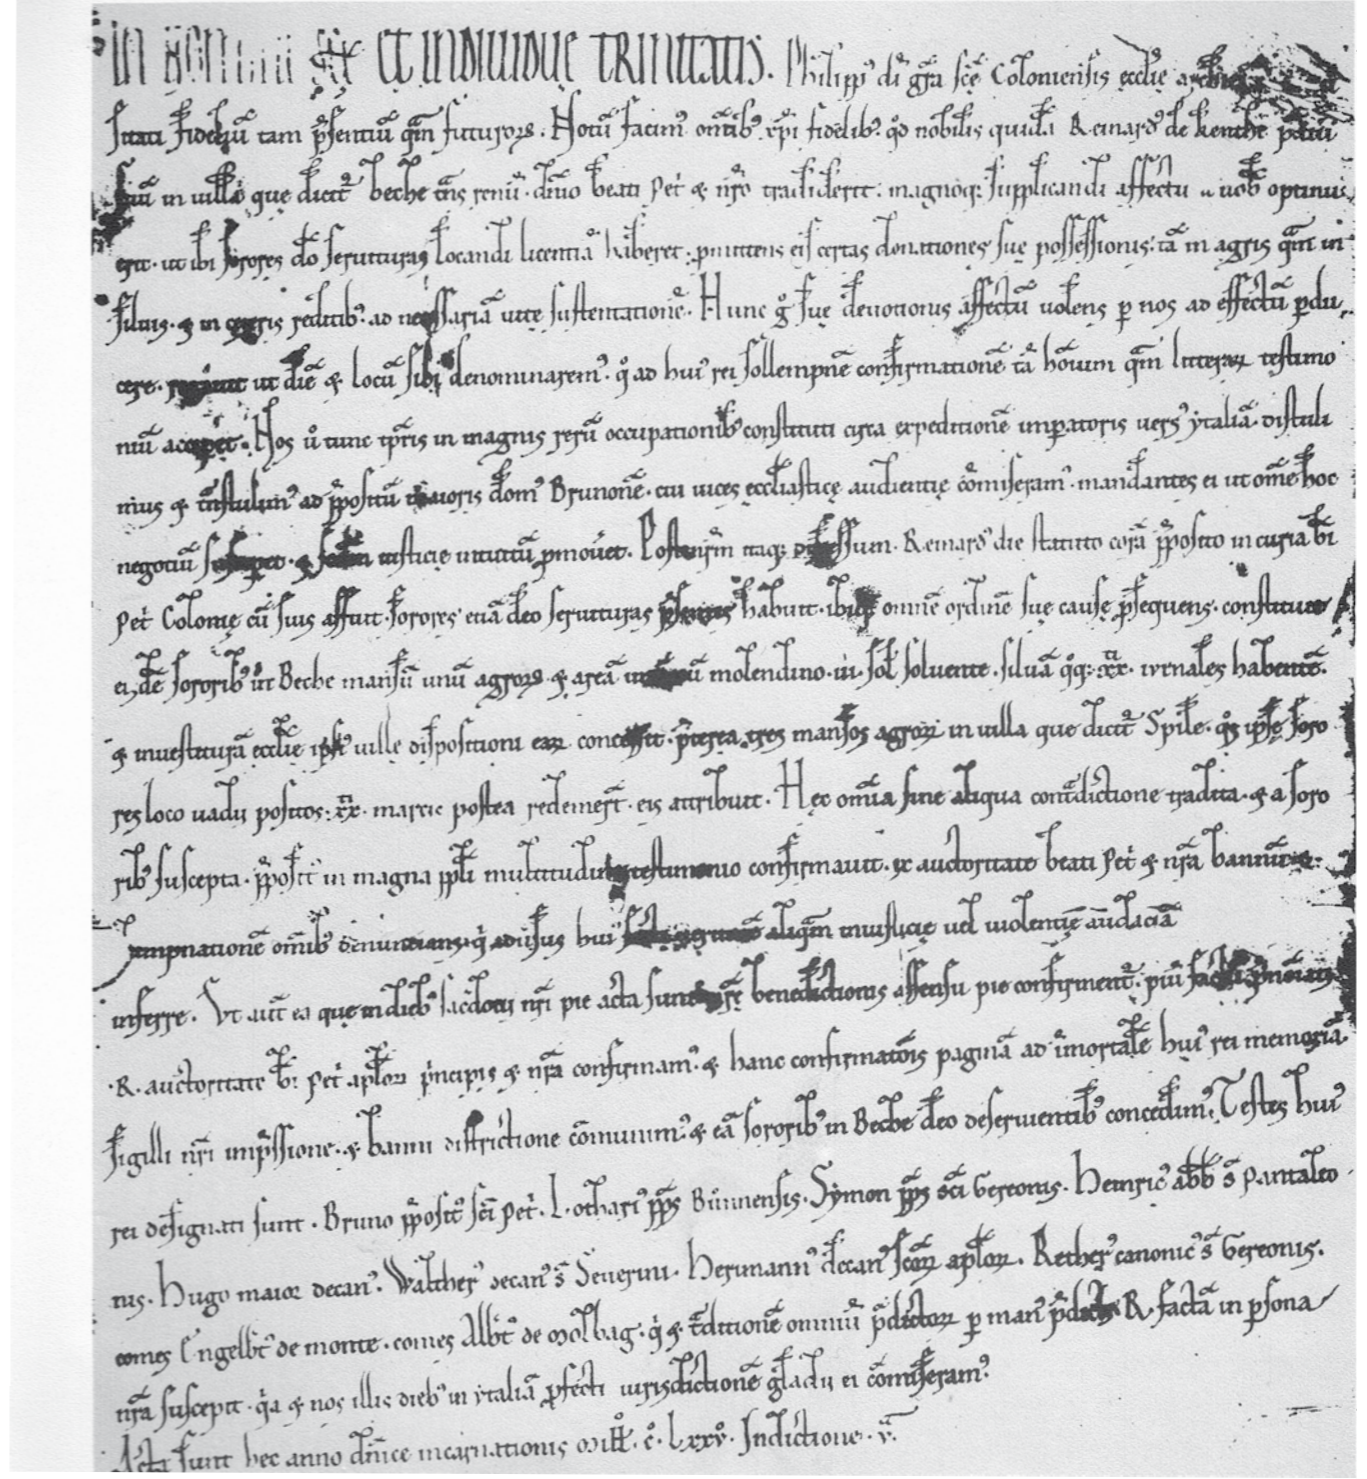 IN NOMINE SCE ET INDIVIDUE TRINITATIS. Philipp' di gr̄a sc̄e Coloniensis eccl̄ie
fidelium tam p̄sentiū qm̄ futuroꝝ. Notū facim' om̄ib' xp̄i fidelib' qd nobilis quidā Reinard' de kenthe
suū in villa que dicit̄ beche t̄ns renū. dn̄o beati Pet̄ & nr̄o tradiderit. magnoq; supplicandi affectu a nob̄ optinu
erit. ut ibi sorores dō servituras locandi licentiā haberet. p̄mittens eis certas donationes sue possessionis. tā in agris qm̄ in
silvis. & in ceteris redditib'. ad necessariā vite sustentationē. Hunc g̊ sue devotionis affectū volens p nos ad effectū pdu
cere. rogavit ut diē & locū sibi denominarem'. q̊ ad hui' rei sollempnē confirmationē tā hōium qm̄ litteraꝝ testimo
niū acciperet. Nos ů tunc tp̄ris in magnis rerū occupationib' constituti circa expeditionē imp̄atoris vers' ytaliā. distuli
mus & t̄nstulim' ad p̄positū maioris dom' Brunonē. cui vices eccl̄iasticę audientię cōmiseram'. mandantes ei ut om̄e hoc
negotiū iusticię intuitu p̄movēt. Postmodū itaq; Reinard' die statuto corā p̄posito in curia bī
Pet̄ Colonię cū suis affuit. sorores etiā deo servituras p̄sentes habuit. ibiq; omnē ordinē suę causę p̄sequens. constituto
ei die sororib' in Beche mansū unū agroꝝ & areā molendino. iii. sol̄ solvente. silvā q̊q; xxx. iurnales habentē.
& investiturā eccl̄ię ipsi' ville dispositioni eaꝝ concessit. p̄terea tres mansos agroꝝ in villa que dicit̄ Spile. q̊s ipsę soro
res loco vadii positos. xxx. marcis postea redemer̄t. eis attribuit. Hęc om̄ia sine aliqua cont̄dictione tradita. & a soro
rib' suscepta. p̄posit' in magna pp̄li multitudinis testimonio confirmavit. ex auctoritate beati Pet̄ & nr̄a bannū &
dempnationē om̄ib' denuncians. qi adv̄sus hui' aliqm̄ iniusticię vel violentię audaciā
inferre. Ut aut̄ ea que in dieb' sac̄docii nr̄i pie acta sunt nr̄ę benedictionis assensu pie confirment̄. piū factū p̄nōiati
.R. auctoritate bī Pet̄ apl̄oꝝ p̄ncipis & nr̄a confirmam'. & hanc confirmatōis paginā ad īmortalē hui' rei memoriā
sigilli nr̄i imp̄ssione. & banni districtione cōmunim'. & eā sororib' in Beche deo deservientib' concedim'. Testes hui'
rei designati sunt. Bruno p̄posit' sc̄i Pet̄. Lothari' pp̄s Bunnensis. Symon pp̄s sc̄i Gereonis. Heinric' abb̄ s̄ Pantaleo
nis. Hugo maior decan'. Walther' decan' s̄ Severini. Hermann' decan' sc̄oꝝ apl̄oꝝ. Rether' canonic' s̄ Gereonis.
comes Engelbt̄' de monte. comes Albt̄' de molbag. qi & t̄ditionē omniū p̄dictoꝝ p man' p̄dicti R. factā in p̄sona
nr̄a suscepit. qa & nos illis dieb' in ytaliā p̄fecti iurisdictionē gladii ei cōmiseram'.
Acta sunt hec anno dn̄ice incarnationis mill̄. c̊. Lxxv̊. Indictione. v̄.